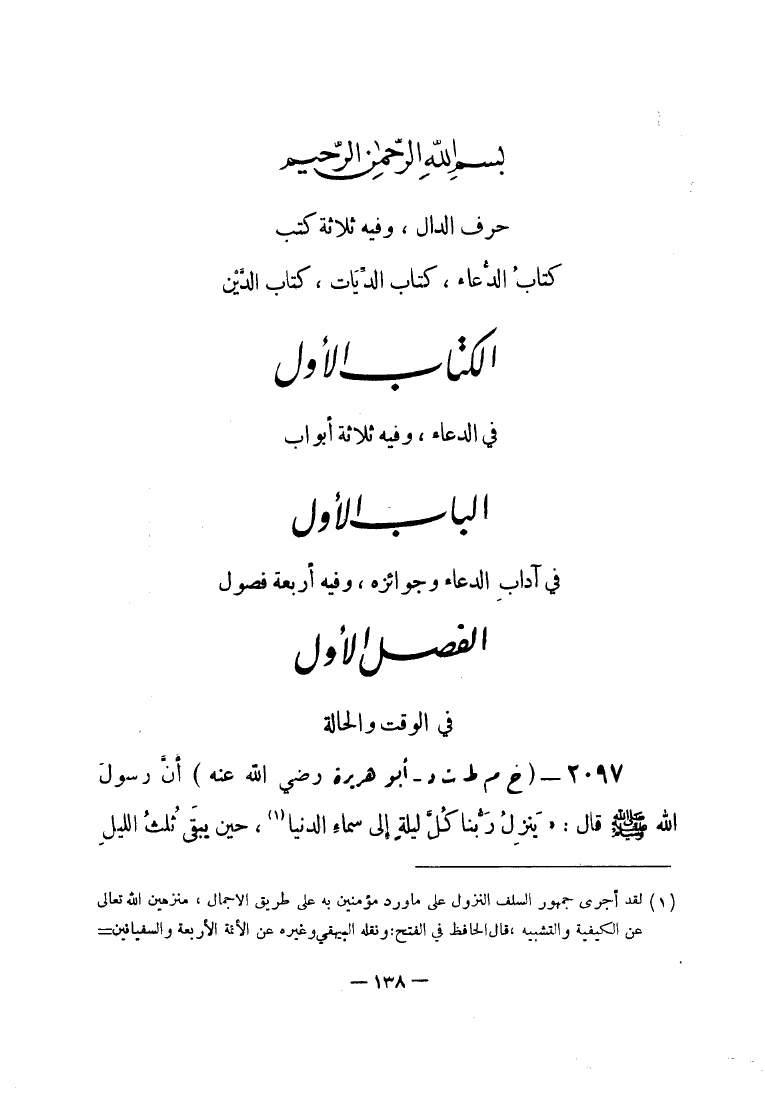 بسم الله الرحمن الرحيم
حرف الدال ، وفيه ثلاثة كتب
كتابُ الدُّعاء ، كتاب الديَات ، كتاب الدَّيْن
الكتاب الأول
في الدعاء ، وفيه ثلاثة أبواب
الباب الأول
في آدابِ الدعاء وجوائزه ، وفيه أربعة فصول
الفصل الأول
في الوقت والحالة
٢٠٩٧ – ( خ م ط ت د - أبو هريرة رضي الله عنه ) أنَّ رسولَ
الله ﷺ قال : « يَنزِلُ ربُّنا كُلَّ ليلةٍ إلى سماءِ الدنيا(١) ، حين يبقَى ثُلثُ الليلِ
(١) لقد أجرى جمهور السلف النزول على ماورد مؤمنين به على طريق الاجمال ، منزهين الله تعالى
عن الكيفية والتشبيه ، قال الحافظ في الفتح : ونقله البيهقي وغيره عن الأئمة الأربعة والسفيانين =
– ١٣٨ –